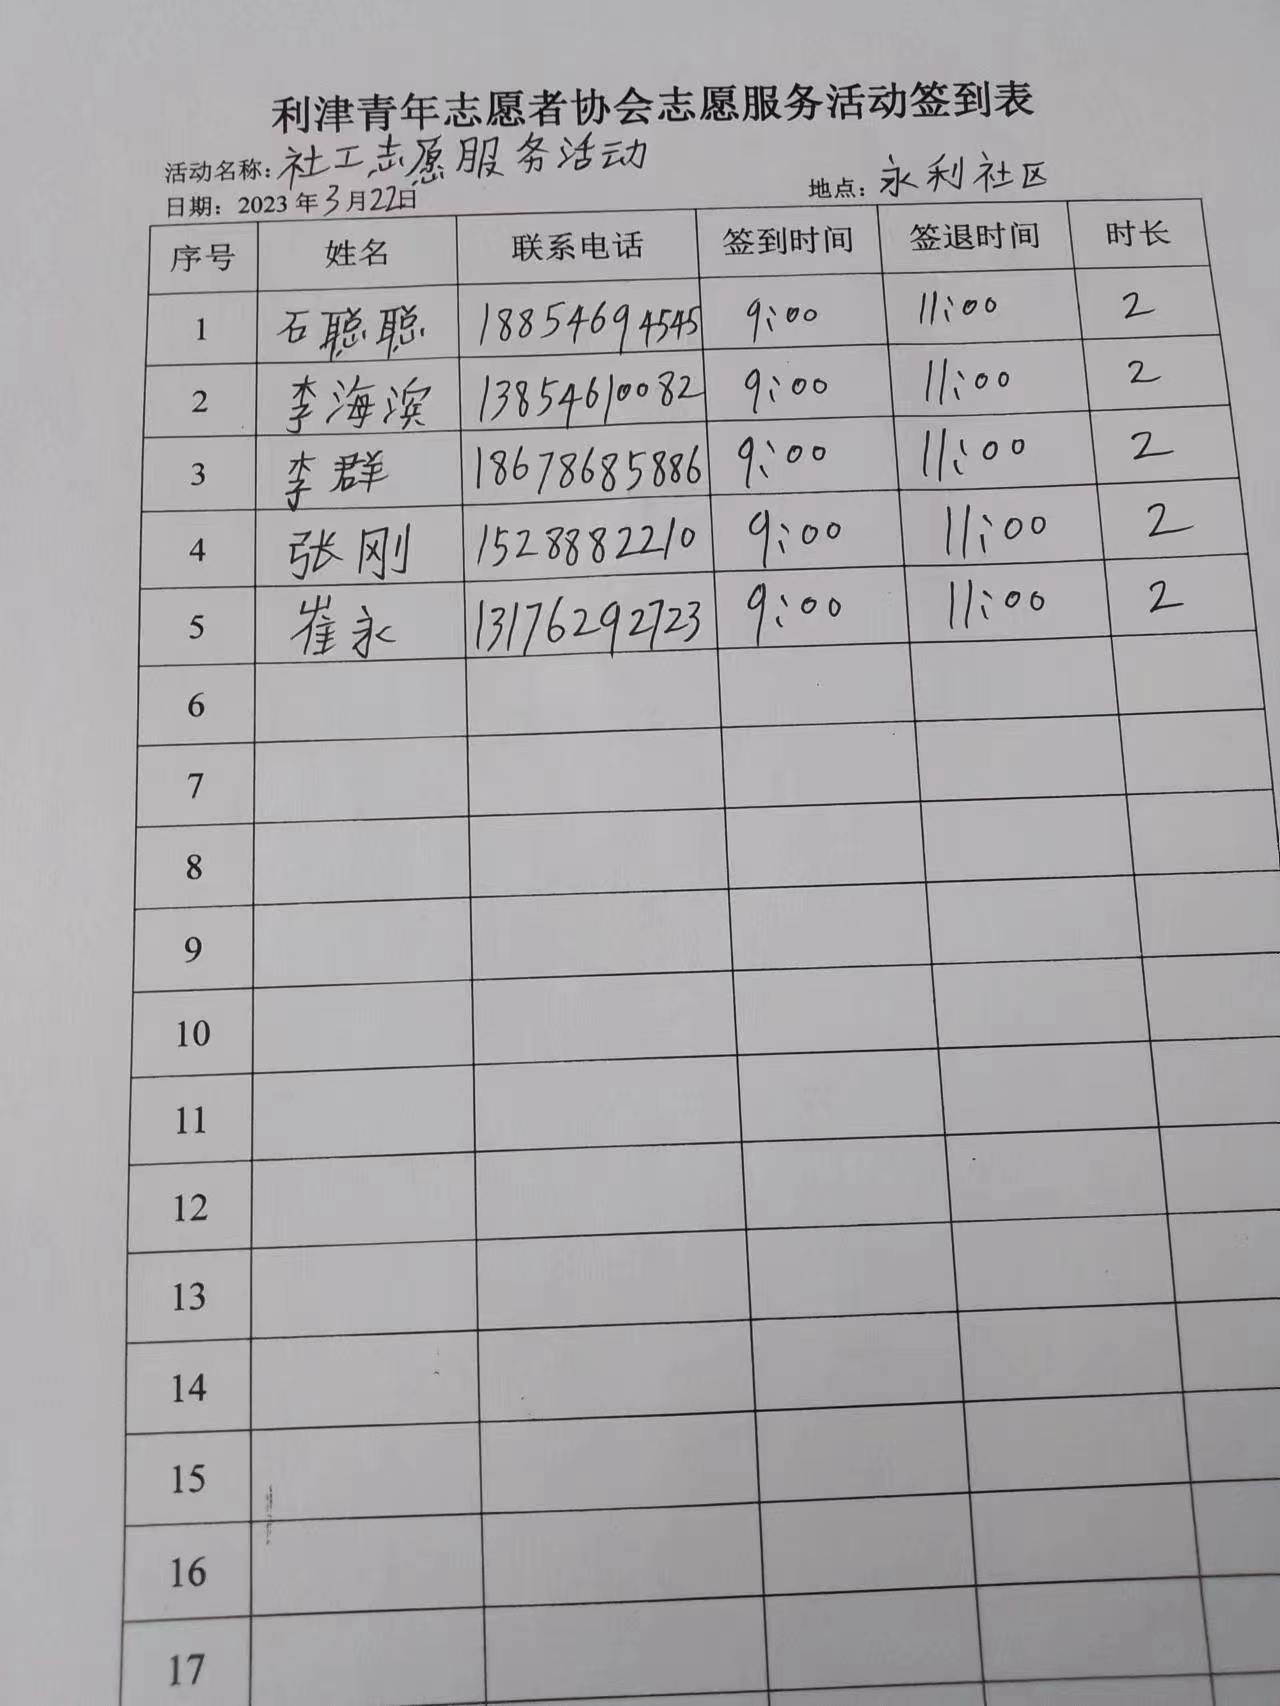 利津青年志愿者协会志愿服务活动签到表
活动名称：社工志愿服务活动
日期：2023年3月22日 地点：永利社区
序号 姓名 联系电话 签到时间 签退时间 时长
1 石聪聪 18854694545 9:00 11:00 2
2 李海滨 13854610082 9:00 11:00 2
3 李群 18678685886 9:00 11:00 2
4 张刚 15288822210 9:00 11:00 2
5 崔永 13176292723 9:00 11:00 2
6
7
8
9
10
11
12
13
14
15
16
17